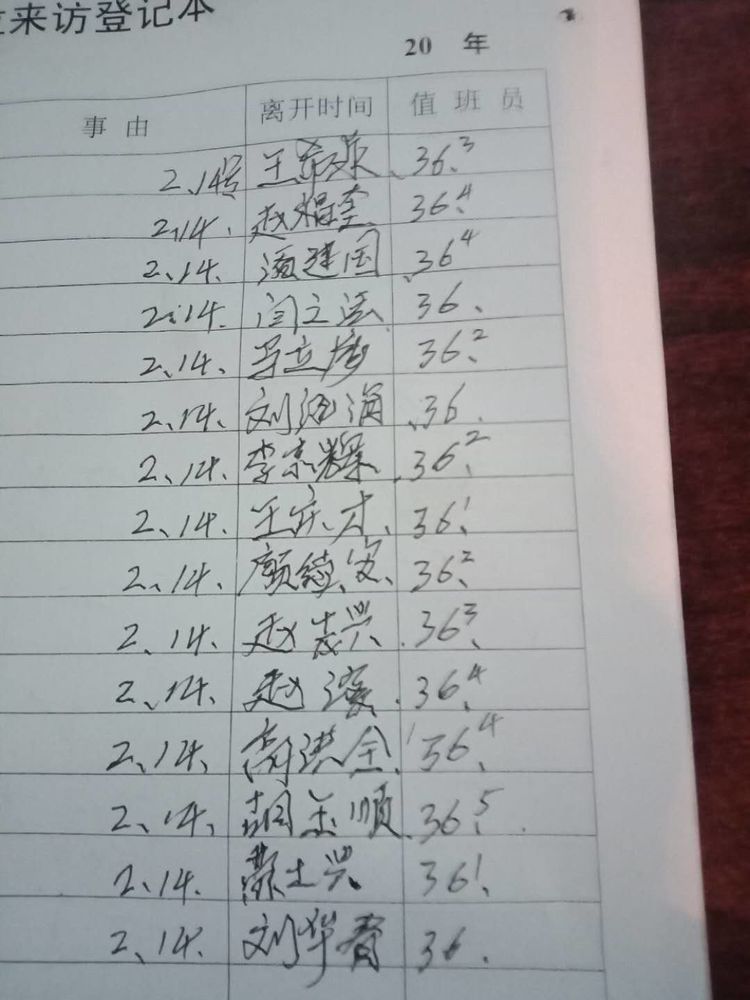 来访登记本
20 年
事由 离开时间 值班员
2.14号 王 36.3
2.14. 赵 36.4
2.14. 潘建国 36.4
2.14. 闫立 36.
2.14. 马立 36.2
2.14. 刘 36.
2.14. 李京 36.2
2.14. 王庆才 36.1
2.14. 颜德安 36.2
2.14. 赵 兴 36.3
2.14. 赵 36.4
2.14. 高洪全 36.4
2.14. 胡玉顺 36.5
2.14. 士兴 36.1
2.14. 刘华春 36.